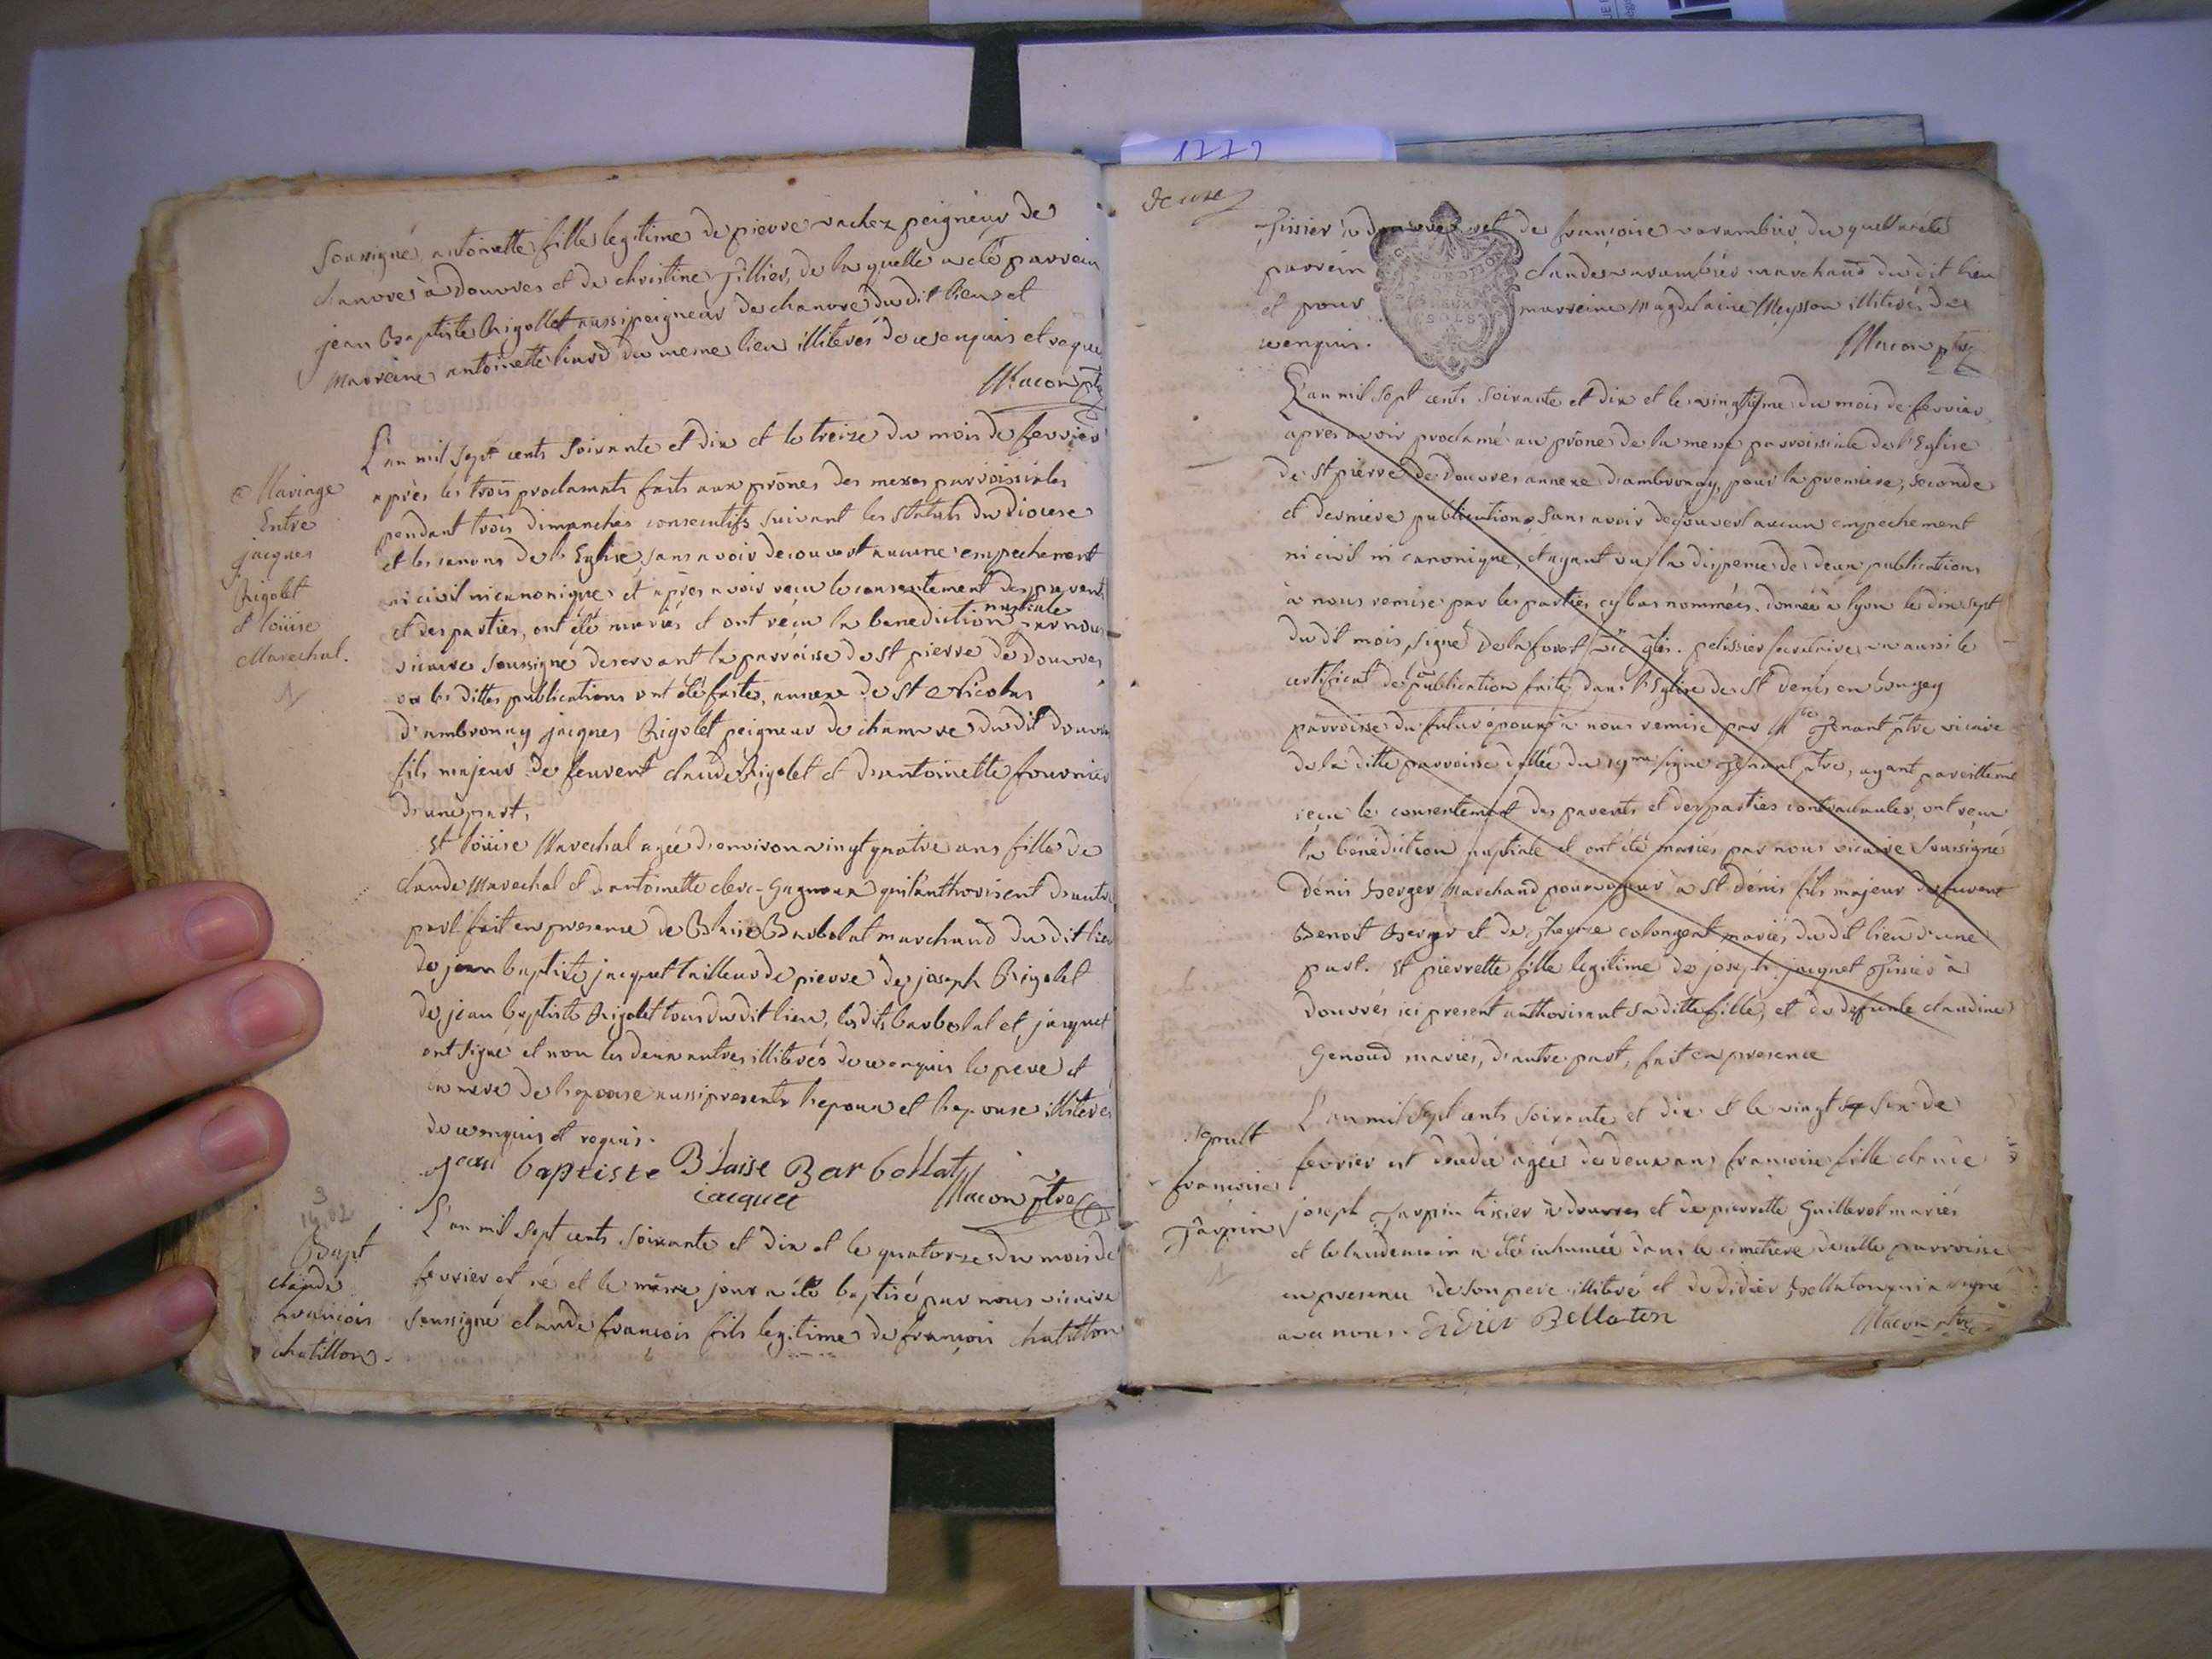 soussigné, antoinette fille legitime de pierre vachez peigneur de
chanvres à douvres et de christine Tillier, de laquelle a eté parrein
jean Baptiste Rigollet aussi peigneur de chanvre du dit lieu et
marreine antoinette liard du meme lieu illiterés de ce enquis et requis
Macon ptre
L'an mil sept cents soixante et dix et le treize du mois de fevrier
après les trois proclamats faits aux prônes des messes parroissiales
pendant trois dimanches consecutifs suivant les statuts du diocese
et les canons de l'Eglise, sans avoir decouvert aucune empechement
ni civil ni canonique et après avoir reçu le consentement des parents
et des parties, ont été mariés et ont reçu la benediction nuptiale par nous
vicaire soussigné deservant la parroisse de st pierre de Douvres
où les dittes publications ont été faites, annexe de st Nicolas
d'ambronay jacques Rigolet peigneur de chanvre du dit douvres
fils majeur de feuvent claude Rigolet et d'antoinette fournier
d'une part,
Mariage
Entre
jacques
Rigolet
et loüise
Marechal.
N
et loüise Marechal agée d'environ vingt quatre ans fille de
claude Marechal et d'antoinette clerc-Gagneux qui l'authorisent d'autre
part fait en presence de Blaise Barbolat marchand du dit lieu
de jean baptiste jacquet tailleur de pierre de joseph Rigolet
de jean baptiste Rigolet tous du dit lieu, les dits barbolat et jacquet
ont signé et non les deux autres illiterés de ce enquis le pere et
la mere de l'epouse aussi presents l'epoux et l'epouse illiterés
de ce enquis et requis.
jean baptiste Blaise Barbollat
iacquet Macon ptre
3
Bapt
claude
francois
chatillon
L'an mil sept cents soixante et dix et le quatorze du mois de
fevrier est né et le même jour a été baptisé par nous vicaire
soussigné claude francois fils legitime de francois chatillon
1772
deuxe
Tissier à douvres et de françoise varambier, du quel a eté
parrein claude varambier marchand du dit lieu
et pour marreine Magdelaine Meysson illiterés de
ce enquis.
SOLS
Macon ptre
L'an mil sept cents soixante et dix et le vingtième du mois de fevrier
apres avoir proclamé au prône de la messe parroissiale de l'Eglise
de st pierre de Douvres annexe d'ambronay, pour la premiere, seconde
et derniere publication, sans avoir decouvert aucun empechement
ni civil ni canonique, et ayant vu la dispense de deux publications
à nous remise par les parties cy bas nommées. donnée à lyon le dix sept
du dit mois, signé Delafont vic gles. pelissier secretaire, vu aussi le
certificat de la publication faite dans l'Eglise de st denis en bougey
parroisse du futur époux à nous remise par Mre Tenant ptre vicaire
de la ditte parroisse dattée du 19me signé Tenant ptre, ayant pareillemt
reçu le consentement des parents et des parties contractantes, ont reçu
la bénédiction nuptiale et ont été mariés par nous vicaire soussigné
dénis Berger marchand pourvoyeur à st dénis fils majeur de feuvent
Benoit Berger et de colongeat mariés du dit lieu d'une
part. Et pierrette fille legitime de joseph jacquet Tissier à
Douvres ici present authorisant sa ditte fille, et de defunte claudine
Genoud mariés, d'autre part, fait en presence
sepult
francoise
Jarpin
N
L'an mil sept cents soixante et dix et le vingt six de
fevrier est decedée agée de deux ans francoise fille claude
joseph Jarpin tissier à douvres et de pierrette Guillerot mariés
et le landemain a été inhumée dans le cimetiere de cette parroisse
en presence de son pere illiteré et de didier Bellaton qui a signé
avec nous. didier Bellaton
Macon ptre